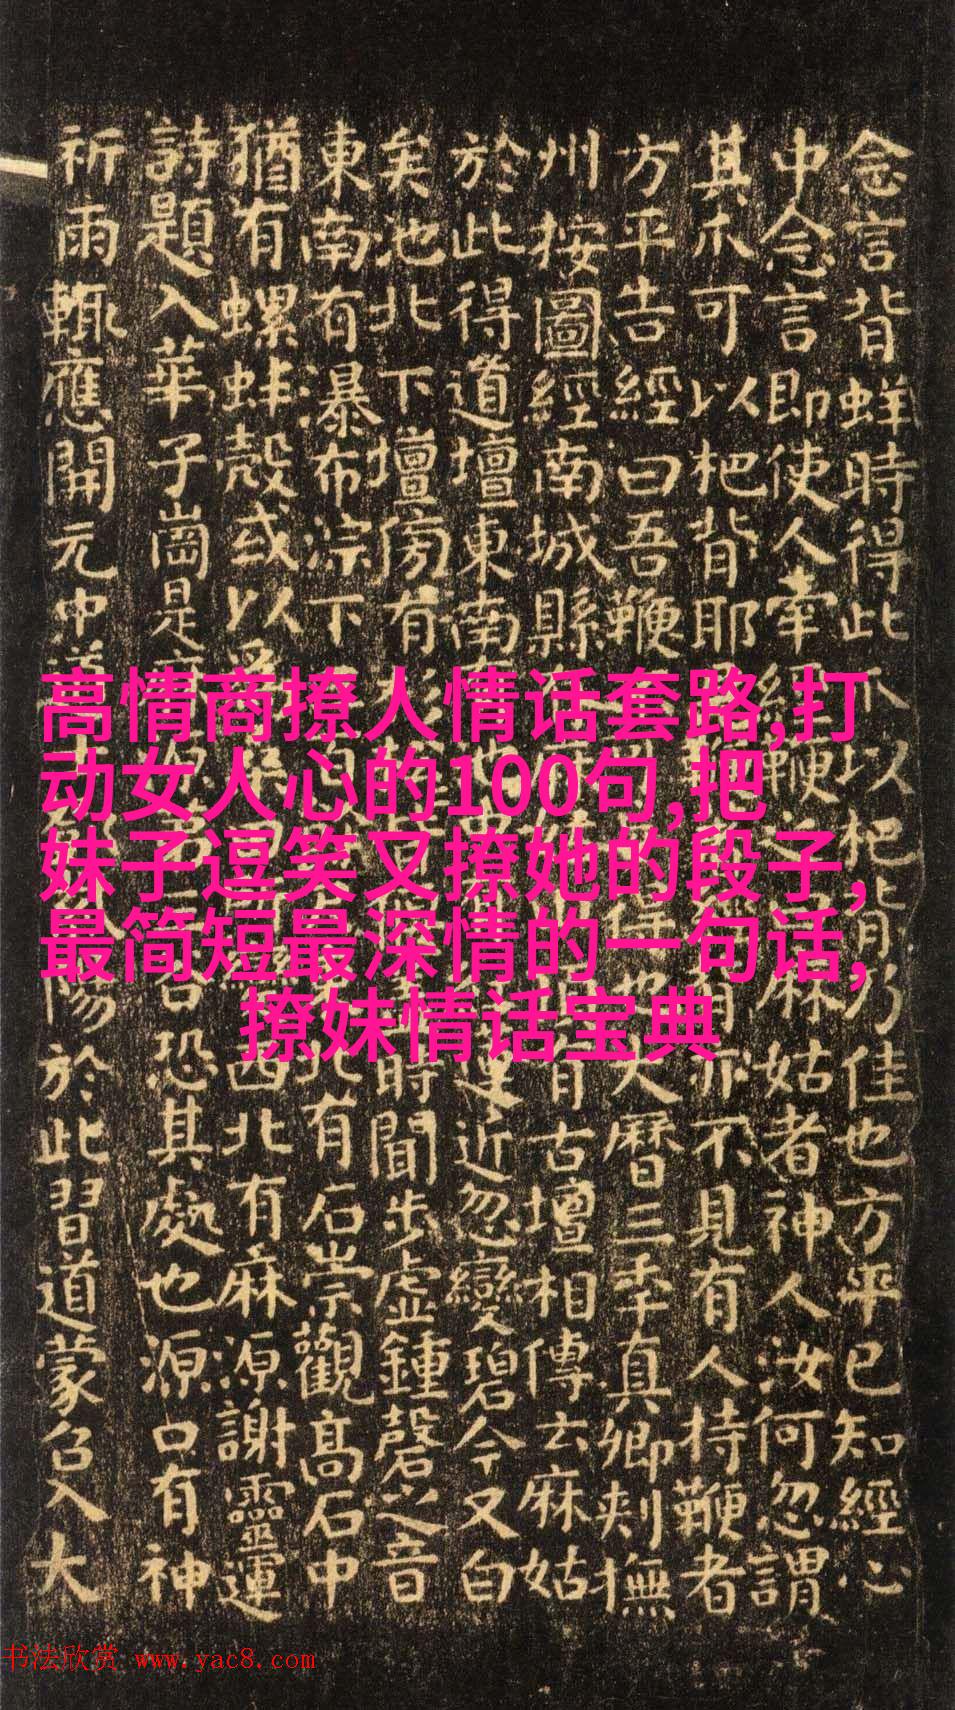 念言背蛘時得此爪以杷背乃佳也方平已知經心
中念言即使人牽經鞭之麻姑者神人汝何忽謂
其爪可以杷背耶見鞭有亦不見有人持鞭者
方平告經曰吾鞭不得也大曆三年真卿刺撫
州按圖經南城縣有古壇相傳云麻姑
於此得道壇東南有池中蓮近忽變碧今又白
矣池北下壇傍有杉時聞步虛鍾磬之音
東南有瀑布淙下三百北有石崇觀高石中
猶有螺蚌殼或以為桑田西北有麻源謝靈運
詩題入華子崗是麻第三谷恐其處也源口有神
祈雨輒應開元中道士鄧紫陽於此習道蒙召入大
高情商撩人情话套路,打
动女人心的100句,把
妹子逗笑又撩她的段子,
最简短最深情的一句话,
撩妹情话宝典
书法欣赏 www.yac8.com